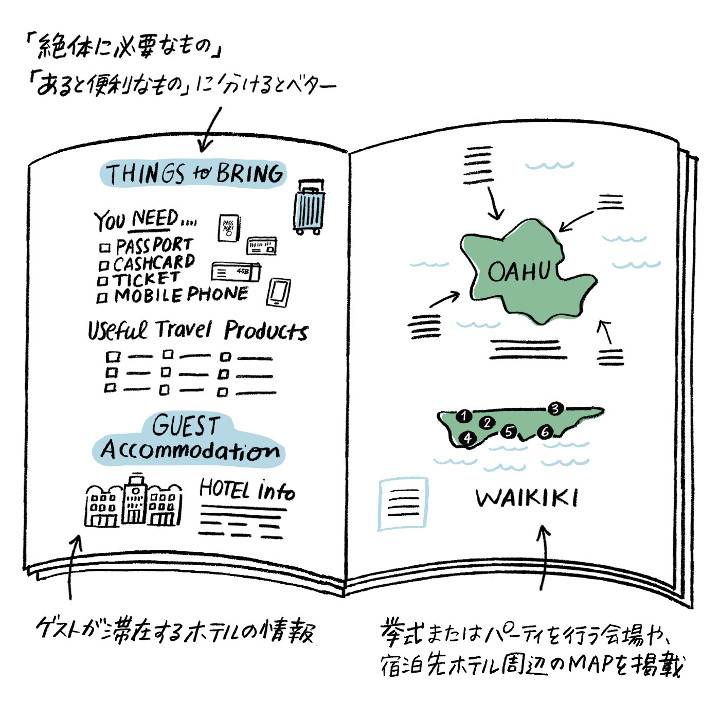 「絶体に必要なもの」
「あると便利なもの」に分けるとベター
THINGS to BRING
YOU NEED....
PASSPORT
CASHCARD
TICKET
MOBILE PHONE
PASSPORT
Useful Travel Products
GUEST
Accommodation
HOTEL info
ゲストが滞在するホテルの情報
OAHU
1
2
3
4
5
6
WAIKIKI
挙式またはパーティを行う会場や、
宿泊先ホテル周辺のMAPを掲載